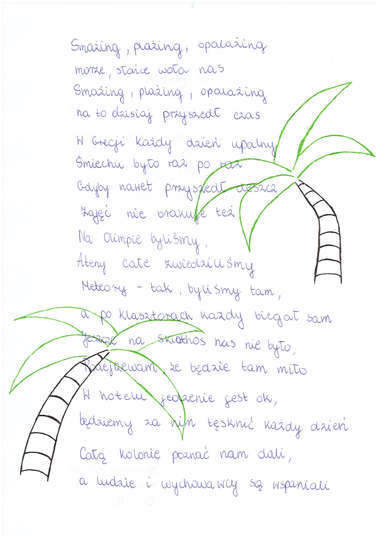 Smażing, plażing, opalażing
morze, słońce woła nas
Smażing, plażing, opalażing
na to dzisiaj przyszedł czas
W Grecji każdy dzień upalny
Śmiechu było raz po raz
Gdyby nawet przyszedł deszcz
Zajęć nie brakuje też
Na Olimpie byliśmy,
Ateny całe zwiedziliśmy
Meteory - tak, byliśmy tam,
a po klasztorach każdy biegał sam
Jeszcze na Skiathos nas nie było,
Podejrzewam, że będzie tam miło
W hotelu jedzenie jest ok,
będziemy za nim tęsknić każdy dzień
Całą kolonie poznać nam dali,
a ludzie i wychowawcy są wspaniali